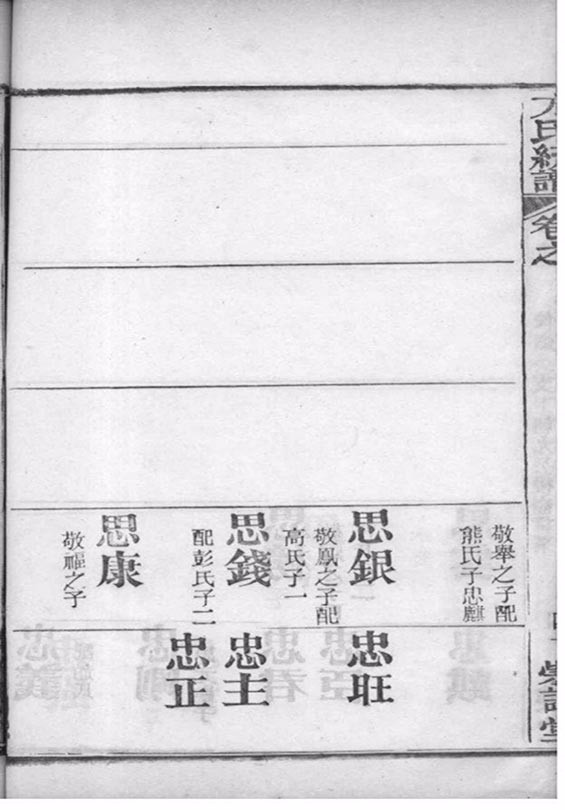 方氏統譜
卷之
敬舉之子配
熊氏子忠麒
思銀
敬鳳之子配
高氏子一
思錢
配彭氏子二
思康
敬福之子
忠旺
忠主
忠正